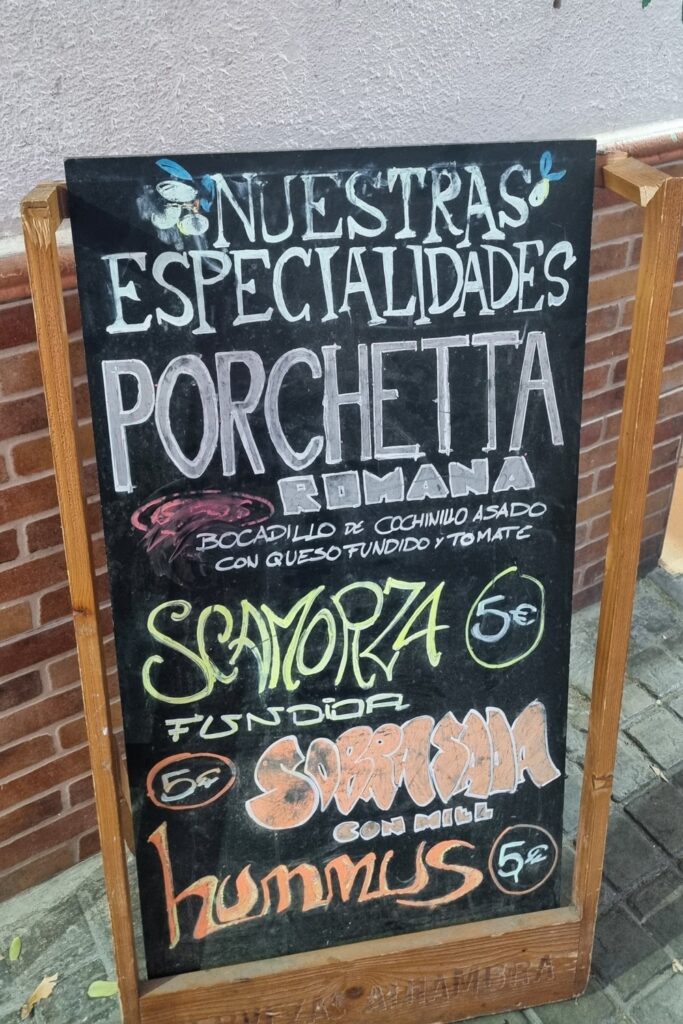 NUESTRAS
ESPECIALIDADES
PORCHETTA
ROMANA
BOCADILLO DE COCHINILLO ASADO
CON QUESO FUNDIDO Y TOMATE
SCAMORZA 5€
FUNDIDA
5€ SOBRASADA
CON MIEL
hummus 5€
ALHAMBRA